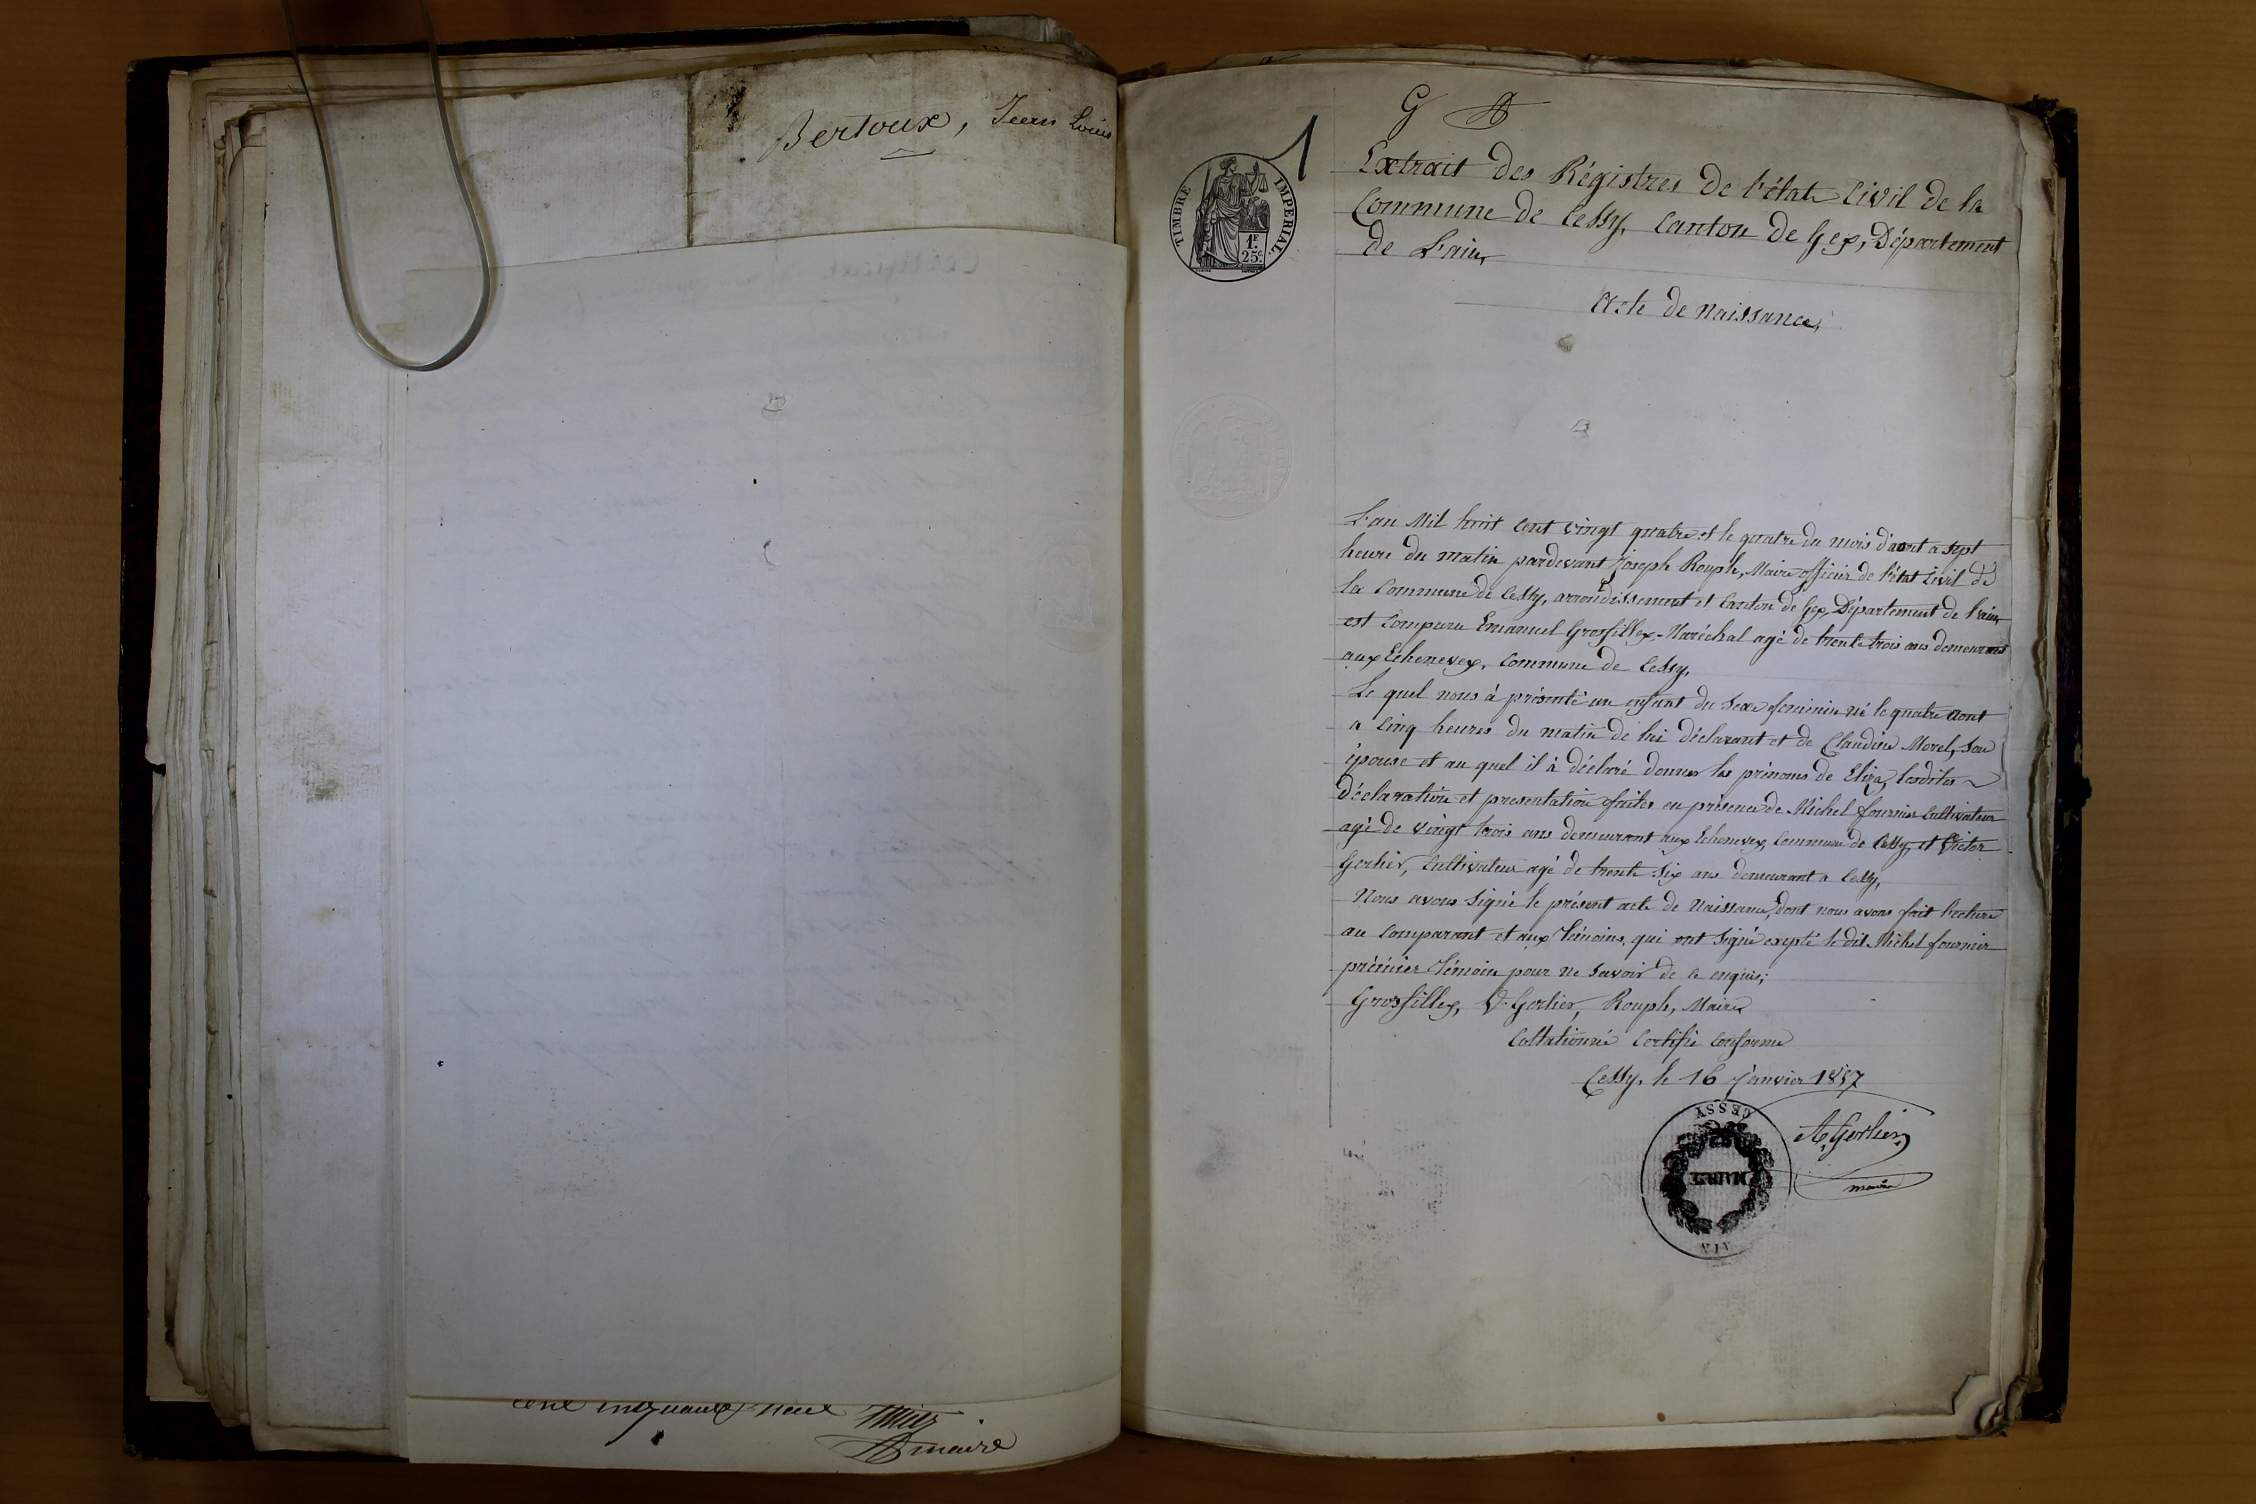 Bertoux, Jean Louis
maire
G
1
TIMBRE IMPERIAL.
1F.
25c.
Extrait des Régistres de l'état Civil de la
Commune de Cessy, Canton de Gex, Département
de L'ain,
Acte de Naissance,
L'an Mil huit cent vingt quatre et le quatre du mois d'aout a sept
heure du matin pardevant Joseph Rouph, Maire officier de l'état Civil de
la Commune de Cessy, arrondissement et Canton de Gex, Département de l'ain,
est Comparu Emanuel Grosfillex, Maréchal agé de trente trois ans demeurant
aux Echenevex, Commune de Cessy,
Le quel nous à présenté un enfant du Sexe féminin né le quatre Aout
a Cinq heures du matin de lui déclarant et de Claudine Morel, Son
épouse et au quel il à déclaré donner les prénoms de Eliza, lesdites
déclaration et presentation faites en présence de Michel fournier Cultivateur
agé de Vingt trois ans demeurant aux Echenevex, Commune de Cessy, et Victor
Gerlier, Cultivateur agé de trente Six ans demeurant a Cessy,
Nous avons Signé le présent acte de Naissance, dont nous avons fait lecture
au Comparant et aux témoins, qui ont Signé expté le dit Michel fournier
prémier témoin pour ne Savoir de ce enquis;
Grosfillex, V. Gerlier, Rouph, Maire
Collationné Certifié Conforme
Cessy, le 16 Janvier 1857
A. Gerlier
maire
CESSY
MAIRIE
AIN